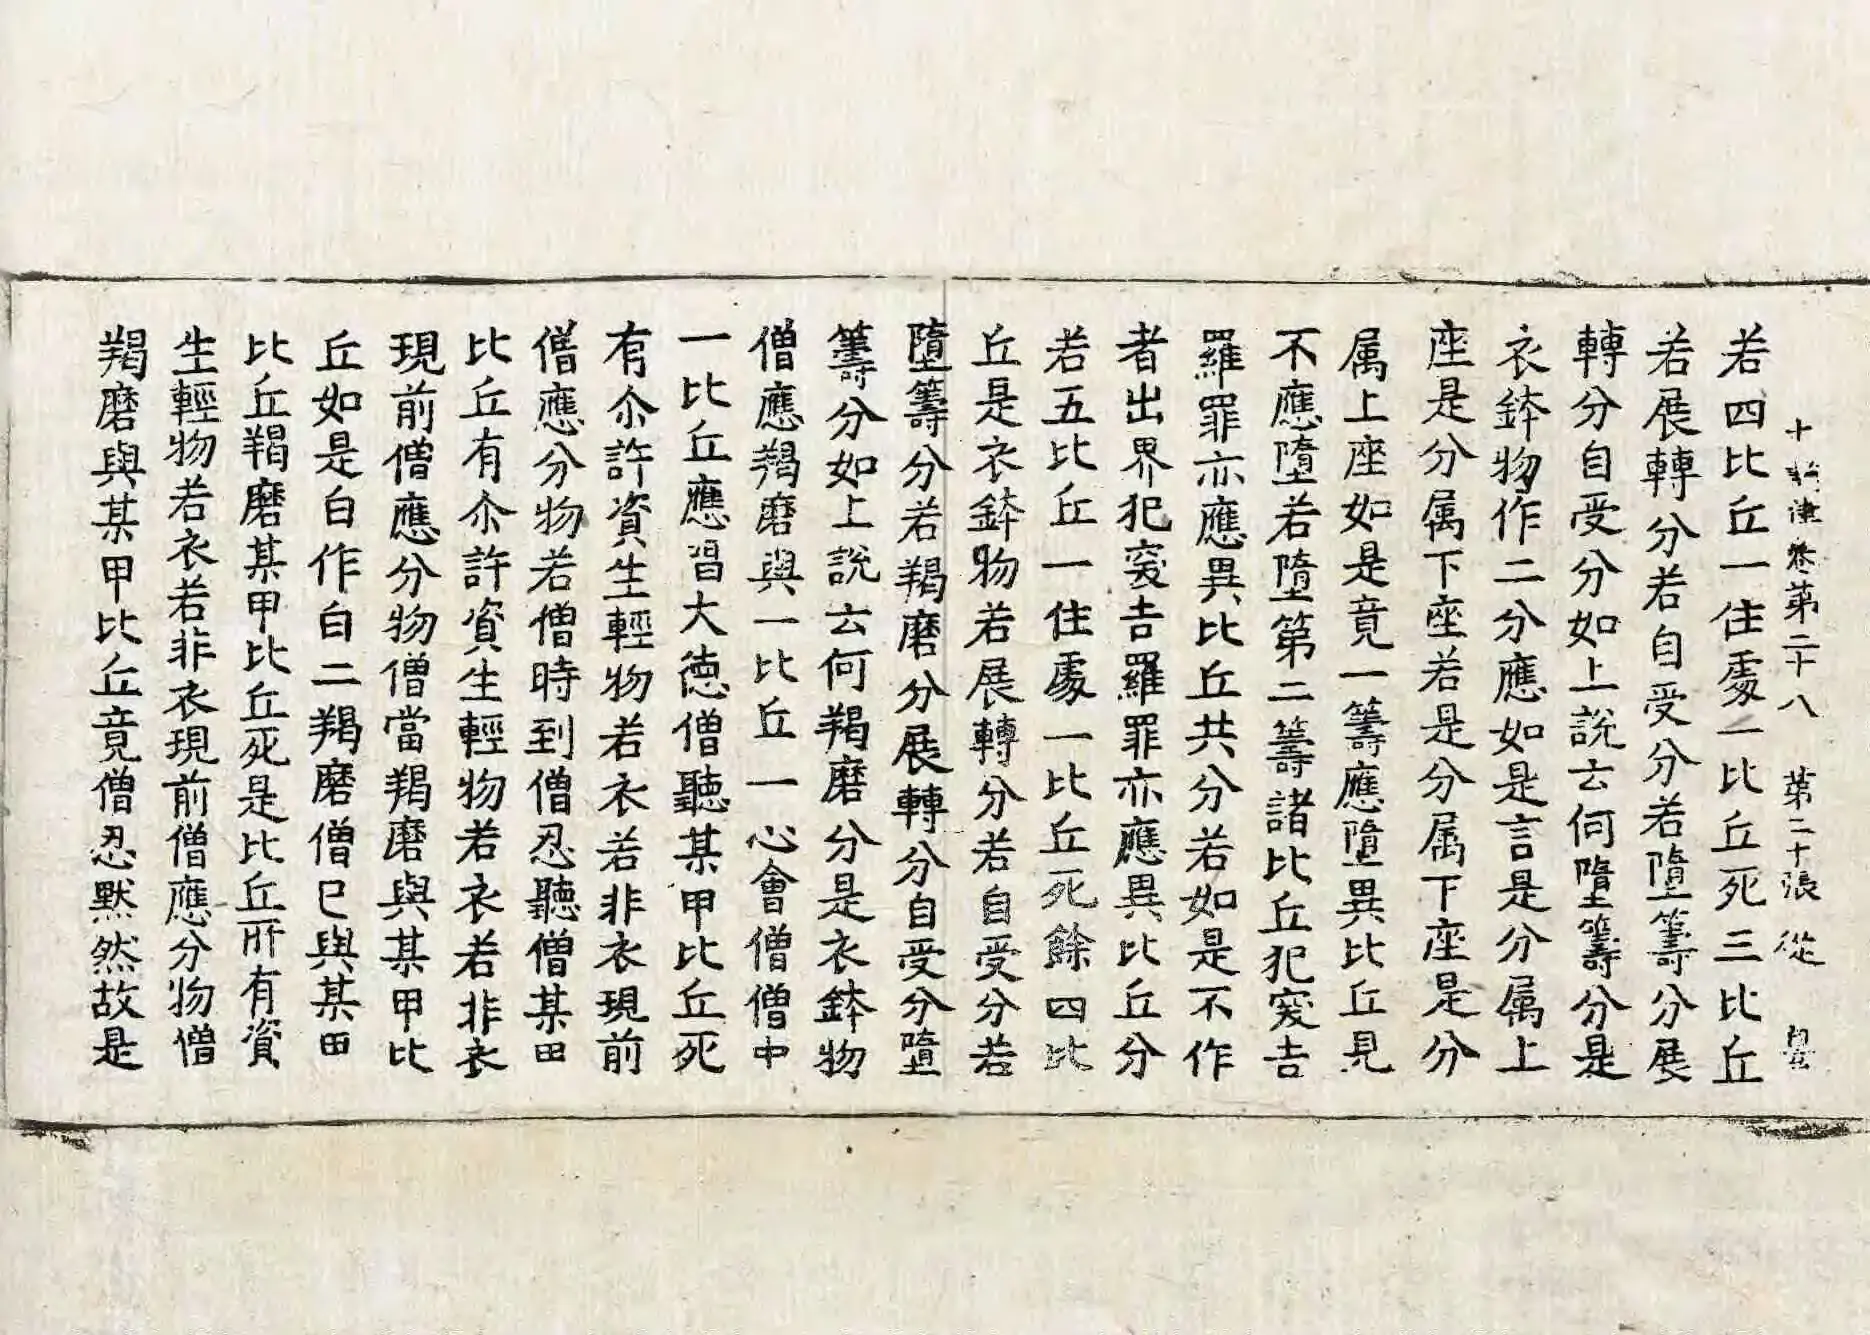 十誦律卷第二十八　第二十張　從
若四比丘一住處一比丘死三比丘
若展轉分若自受分若墮籌分展
轉分自受分如上說云何墮籌分是
衣鉢物作二分應如是言是分属上
座是分属下座若是分属下座是分
属上座如是竟一籌應墮異比丘見
不應墮若墮第二籌諸比丘犯突吉
羅罪亦應異比丘共分若如是不作
者出界犯突吉羅罪亦應異比丘分
若五比丘一住處一比丘死餘四比
丘是衣鉢物若展轉分若自受分若
墮籌分若羯磨分展轉分自受分墮
籌分如上說云何羯磨分是衣鉢物
僧應羯磨與一比丘一心會僧僧中
一比丘應唱大德僧聽某甲比丘死
有尒許資生輕物若衣若非衣現前
僧應分物若僧時到僧忍聽僧某甲
比丘有尒許資生輕物若衣若非衣
現前僧應分物僧當羯磨與某甲比
丘如是白作白二羯磨僧已與某甲
比丘羯磨某甲比丘死是比丘所有資
生輕物若衣若非衣現前僧應分物僧
羯磨與某甲比丘竟僧忍默然故是